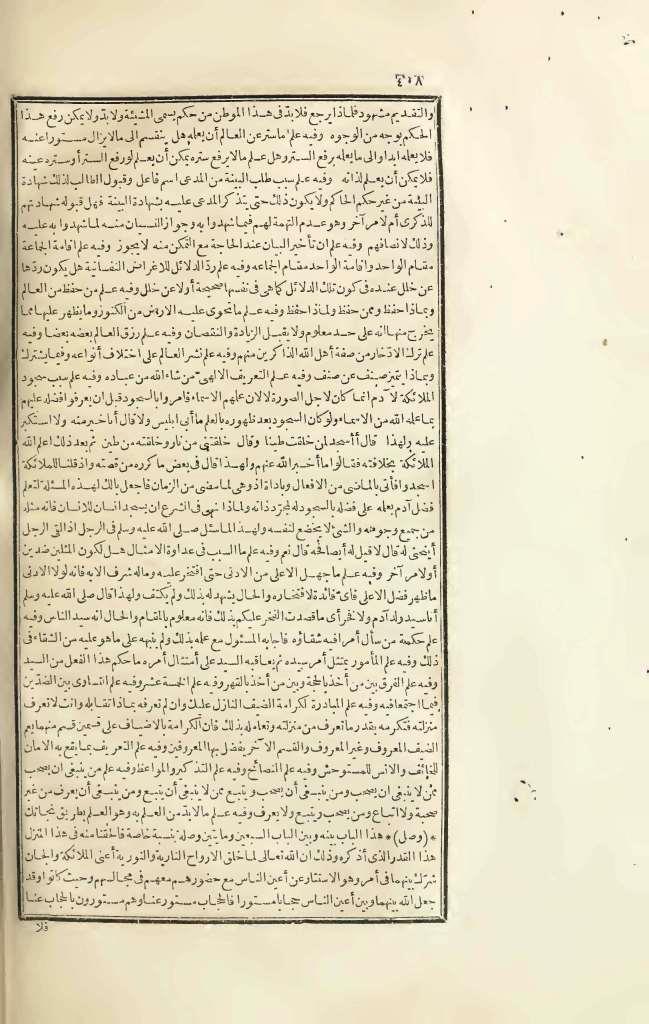 ٤١٨
والتقديم مشهود فلماذا يرجع فلابد في هذا الموطن من حكم يسمى المشيئة ولابد ولا يمكن رفع هذا
الحكم بوجه من الوجوه وفيه علم ما ستر عن العالم أن يعلم هل ينقسم الى ما لا يزال مستورا عنه
فلا يعلمه ابدا والى ما يعلمه برفع الستر وهل علم ما لا يرفع ستره يمكن أن يعلم لو رفع الستر أو ستره عينه
فلا يمكن أن يعلم لذاته وفيه علم سبب طلب البينة من المدعى اسم فاعل وقبول الطالب لذلك شهادة
البينة من غير حكم الحاكم ولا يكون ذلك حتى يتذكر المدعى عليه بشهادة البينة فهل قبوله شهادتهم
للذكرى أم لأمر آخر وهو عدم التهمة لهم فيما شهدوا به وجواز النسيان منه لما شهدوا به عليه
وذلك لانصافهم وفيه علم ان تأخير البيان عند الحاجة مع التمكن منه لا يجوز وفيه علم اقامة الجماعة
مقام الواحد واقامة الواحد مقام الجماعه وفيه علم ردّ الدلائل للاغراض النفسانية هل يكون ردّها
عن خلل عنده في كون تلك الدلائل كما هى في نفسها صحيحة أو لا عن خلل وفيه علم من حفظ من العالم
وبماذا حفظ وممن حفظ ولماذا حفظ وفيه علم ما تحوى عليه الارض من الكنوز وما يظهر عليها مما
يخرج منها انه على حد معلوم ولا يقبل الزيادة والنقصان وفيه علم رزق العالم بعضه بعضا وفيه
علم ترك الادّخار من صفة أهل الله الذاكرين منهم وفيه علم نشر العالم على اختلاف أنواعه وفيما يشترك
وبماذا يتميز صنف عن صنف وفيه علم التعريف الالهىّ من شاء الله من عباده وفيه علم سبب سجود
الملائكة لآدم انما كان لاجل الصورة لا لان علمهم الاسماء فامروا بالسجود قبل ان يعرفوا فضله عليهم
بما علمه الله من الاسماء ولو كان السجود بعد ظهوره بالعلم ما أبى ابليس ولا قال أنا خير منه ولا استكبر
عليه ولهذا قال أأسجد لمن خلقت طينا وقال خلقتنى من نار وخلقته من طين ثم بعد ذلك اعلم الله
الملائكة بخلافته فقالوا ما أخبر الله عنهم ولهذا قال في بعض ما كرره من قصته واذ قلنا للملائكة
اسجدوا فأتى بالماضى من الافعال وباداة اذ وهى لما مضى من الزمان فاجعل بالك لهذه المسئلة لتعلم
فضل آدم بعلمه على فضله بالسجود له لمجرّد ذاته ولماذا نهى في الشرع ان يسجد انسان لانسان فانه مثله
من جميع وجوهه والشئ لا يخضع لنفسه ولهذا لما سئل صلى الله عليه وسلم في الرجل اذا التى الرجل
أينحنى له قال لا قيل له أيصافحه قال نعم وفيه علم ما السبب في عداوة الامثال هل لكون المثلين ضدين
أو لامر آخر وفيه علم ما جهل الاعلى من الادنى حتى افتخر عليه وماله شرف الا به فانه لولا الادنى
ما ظهر فضل الاعلى فاىّ فائدة لافتخاره والحال يشهد له بذلك ولم يكتف ولهذا قال صلى الله عليه وسلم
أنا سيد ولد آدم ولا فخر أى ما قصدت الفخر عليكم بذلك فانه معلوم بالمقام والحال انه سيد الناس وفيه
علم حكمة من سأل أمرا فيه شقاؤه فاجابه المسئول مع علمه بذلك ولم ينبهه على ما هو عليه من الشقاء في
ذلك وفيه علم المأمور يمتثل أمر سيده ثم يعاقبه السيد على أمتثال أمره ما حكم هذا الفعل من السيد
وفيه علم الفرق بين من أخذ بالحجة وبين من أخذ بالقهر وفيه علم الخسة عشر وفيه علم التساوى بين الضدّين
فيما اجتمعا فيه وفيه علم المبادرة لكرامة الضيف النازل عليك وان لم تعرفه بماذا تقابله وانت لا تعرف
منزلته فتكرمه بقدر ما تعرف من منزلته وتعامله بذلك فان الكرامة بالاضياف على قسمين قسم منهما يعم
الضيف المعروف وغير المعروف والقسم الآخر يفضل بها المعروفين وفيه علم التعريف بما يقع به الامان
للخائف والانس للمستوحش وفيه علم النصائح وفيه علم التذكير والمواعظ وفيه علم من ينبغى ان يصحب
ممن لا ينبغى ان يصحب ومن ينبغى أن يصحب ويتبع ممن لا ينبغى أن يتبع ومن ينبغى أن يعرف من غير
صحبة ولا اتباع ومن يصحب ويتبع ولا يعرف وفيه علم ما لابد من العلم به وهو العلم بطريق نجاتك
*(وصل)* هذا الباب بينه وبين الباب السبعين ومايتين وصلة بنسبة خاصة فالحقنا منه في هذا المنزل
هذا القدر الذى أذكره وذلك ان الله تعالى لما خلق الارواح النارية والنورية أعنى الملائكة والجان
شرّك بينهما في أمر وهو الاستتار عن أعين الناس مع حضورهم معهم في مجالسهم وحيث كانوا وقد
جعل الله بينهما وبين أعين الناس حجابا مستورا فالحجاب مستور عنا وهم مستورون بالحجاب عنا
فلا